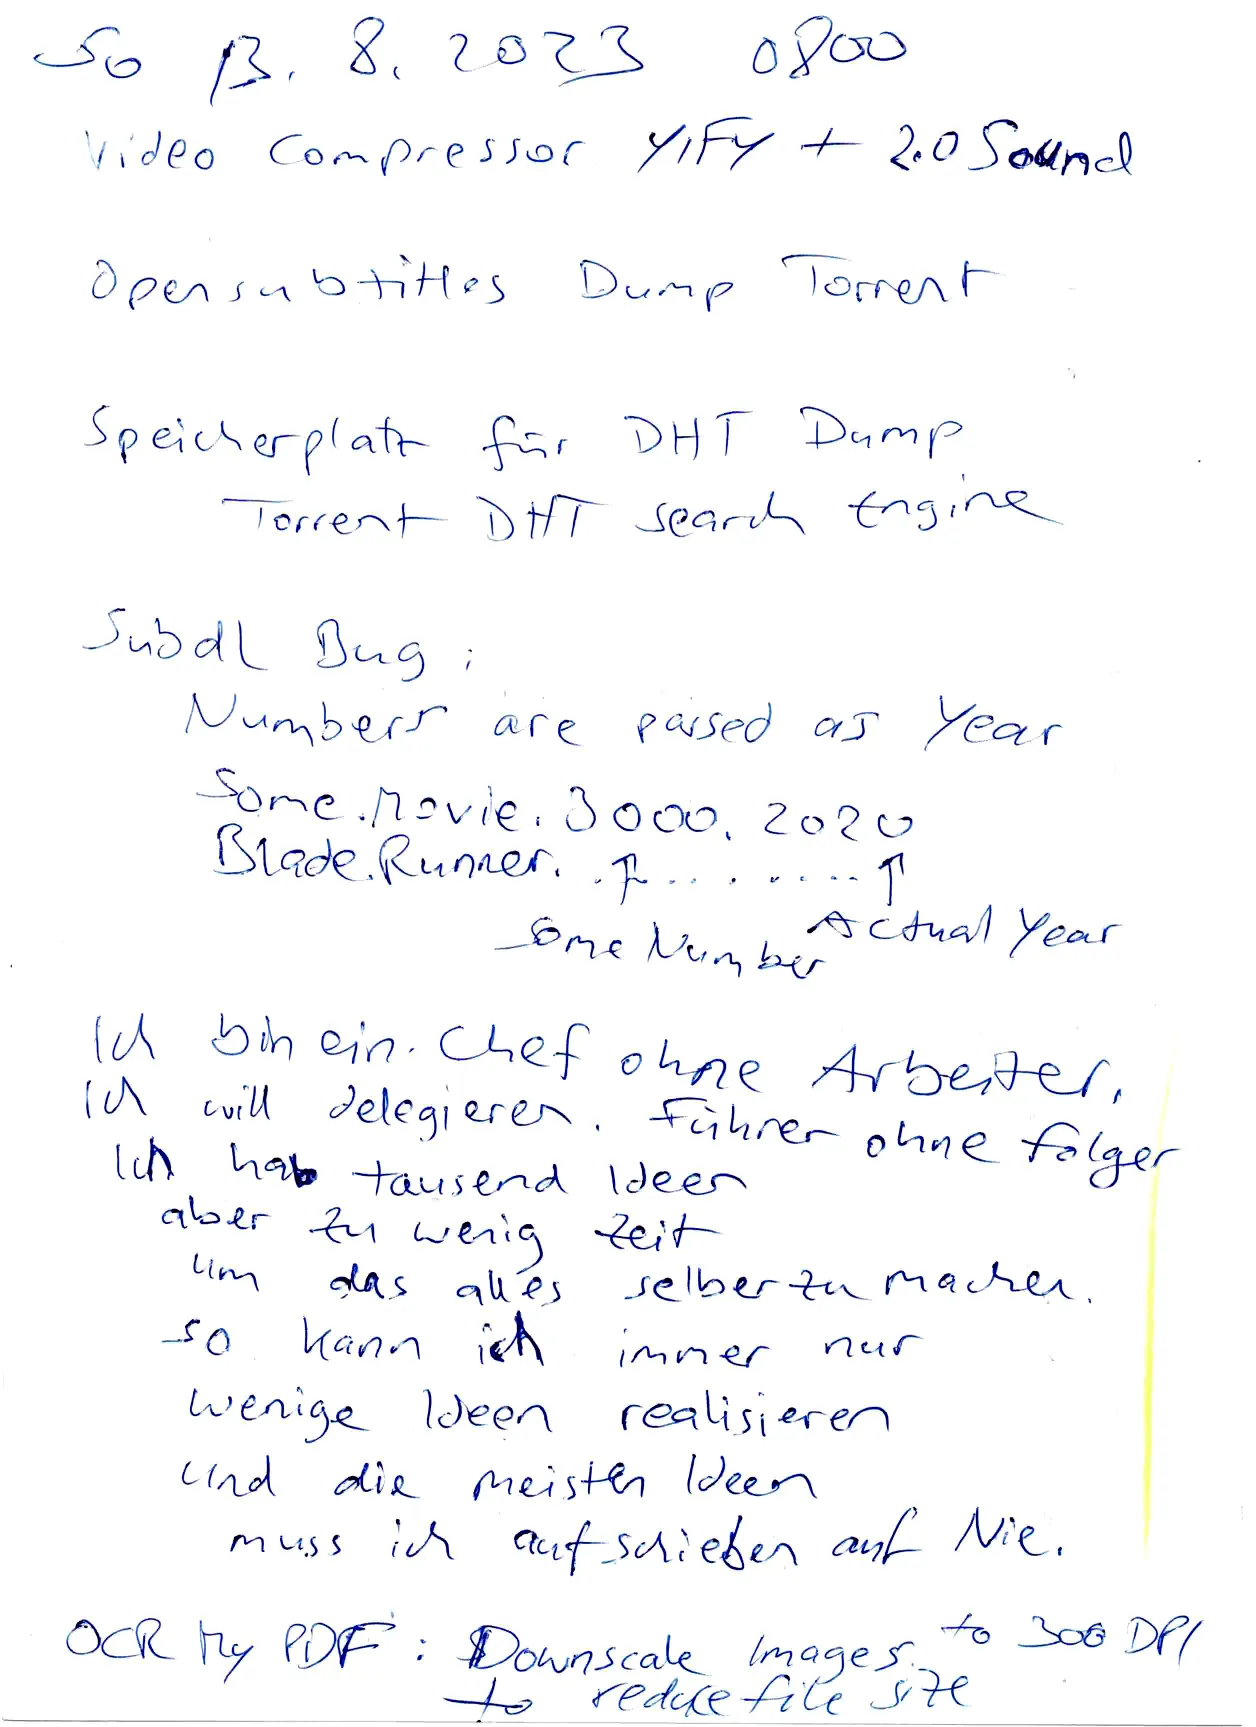 So 13. 8. 2023 0800
Video Compressor YIFY + 2.0 Sound
Opensubtitles Dump Torrent
Speicherplatz für DHT Dump
Torrent DHT search Engine
Subdl Bug :
Numbers are parsed as Year
Some.Movie.3000.2020
Blade.Runner. . ↑ . . . . . . . . ↑
some Number Actual Year
Ich bin ein Chef ohne Arbeiter.
Ich will delegieren. Führer ohne Folger
Ich hab tausend Ideen
aber zu wenig Zeit
um das alles selber zu machen.
so kann ich immer nur
wenige Ideen realisieren
und die meisten Ideen
muss ich aufschieben auf Nie.
OCR My PDF : Downscale Images to 300 DPI
to reduce file size